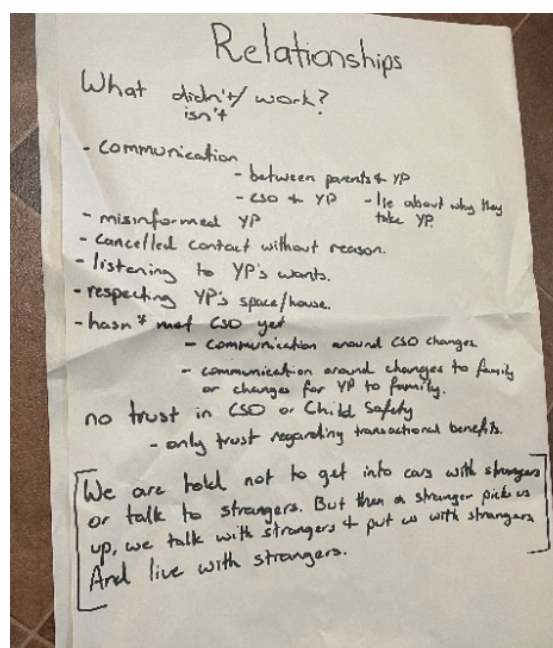 Relationships
What didn't/ work?
isn't
- communication
- between parents & YP
- CSO & YP - lie about why they
take YP.
- misinformed YP
- cancelled contact without reason.
- listening to YP's wants.
- respecting YP's space/house.
- hasn't met CSO yet
- communication around CSO changes
- communication around changes to family
or changes for YP to family.
no trust in CSO or Child Safety
- only trust regarding transactional benefits.
We are told not to get into cars with strangers
or talk to strangers. But then a stranger picks us
up, we talk with strangers & put us with strangers
And live with strangers.